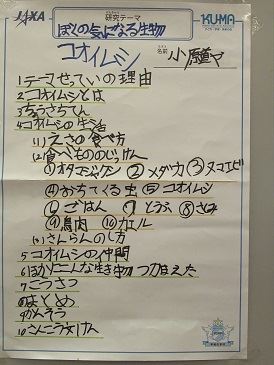 JAXA
研究テーマ
KUMA
ぼくの気になる生物
コオイムシ
名前 小原
1テーマせっていの理由
2コオイムシとは
4コオイムシの生活
(1)えさの食べ方
(2)食べもののじっけん
①オタマジャクシ ②メダカ ③ヌマエビ
④おちてくる虫 ⑤コオイムシ
⑥ごはん ⑦とうふ ⑧さしみ
⑨鳥肉 ⑩カエル
(3)さんらんのし方
5コオイムシの仲間
6ほかにこんな生き物つかまえた
7こうさつ
8まとめ
9かんそう
10さんこう文けん